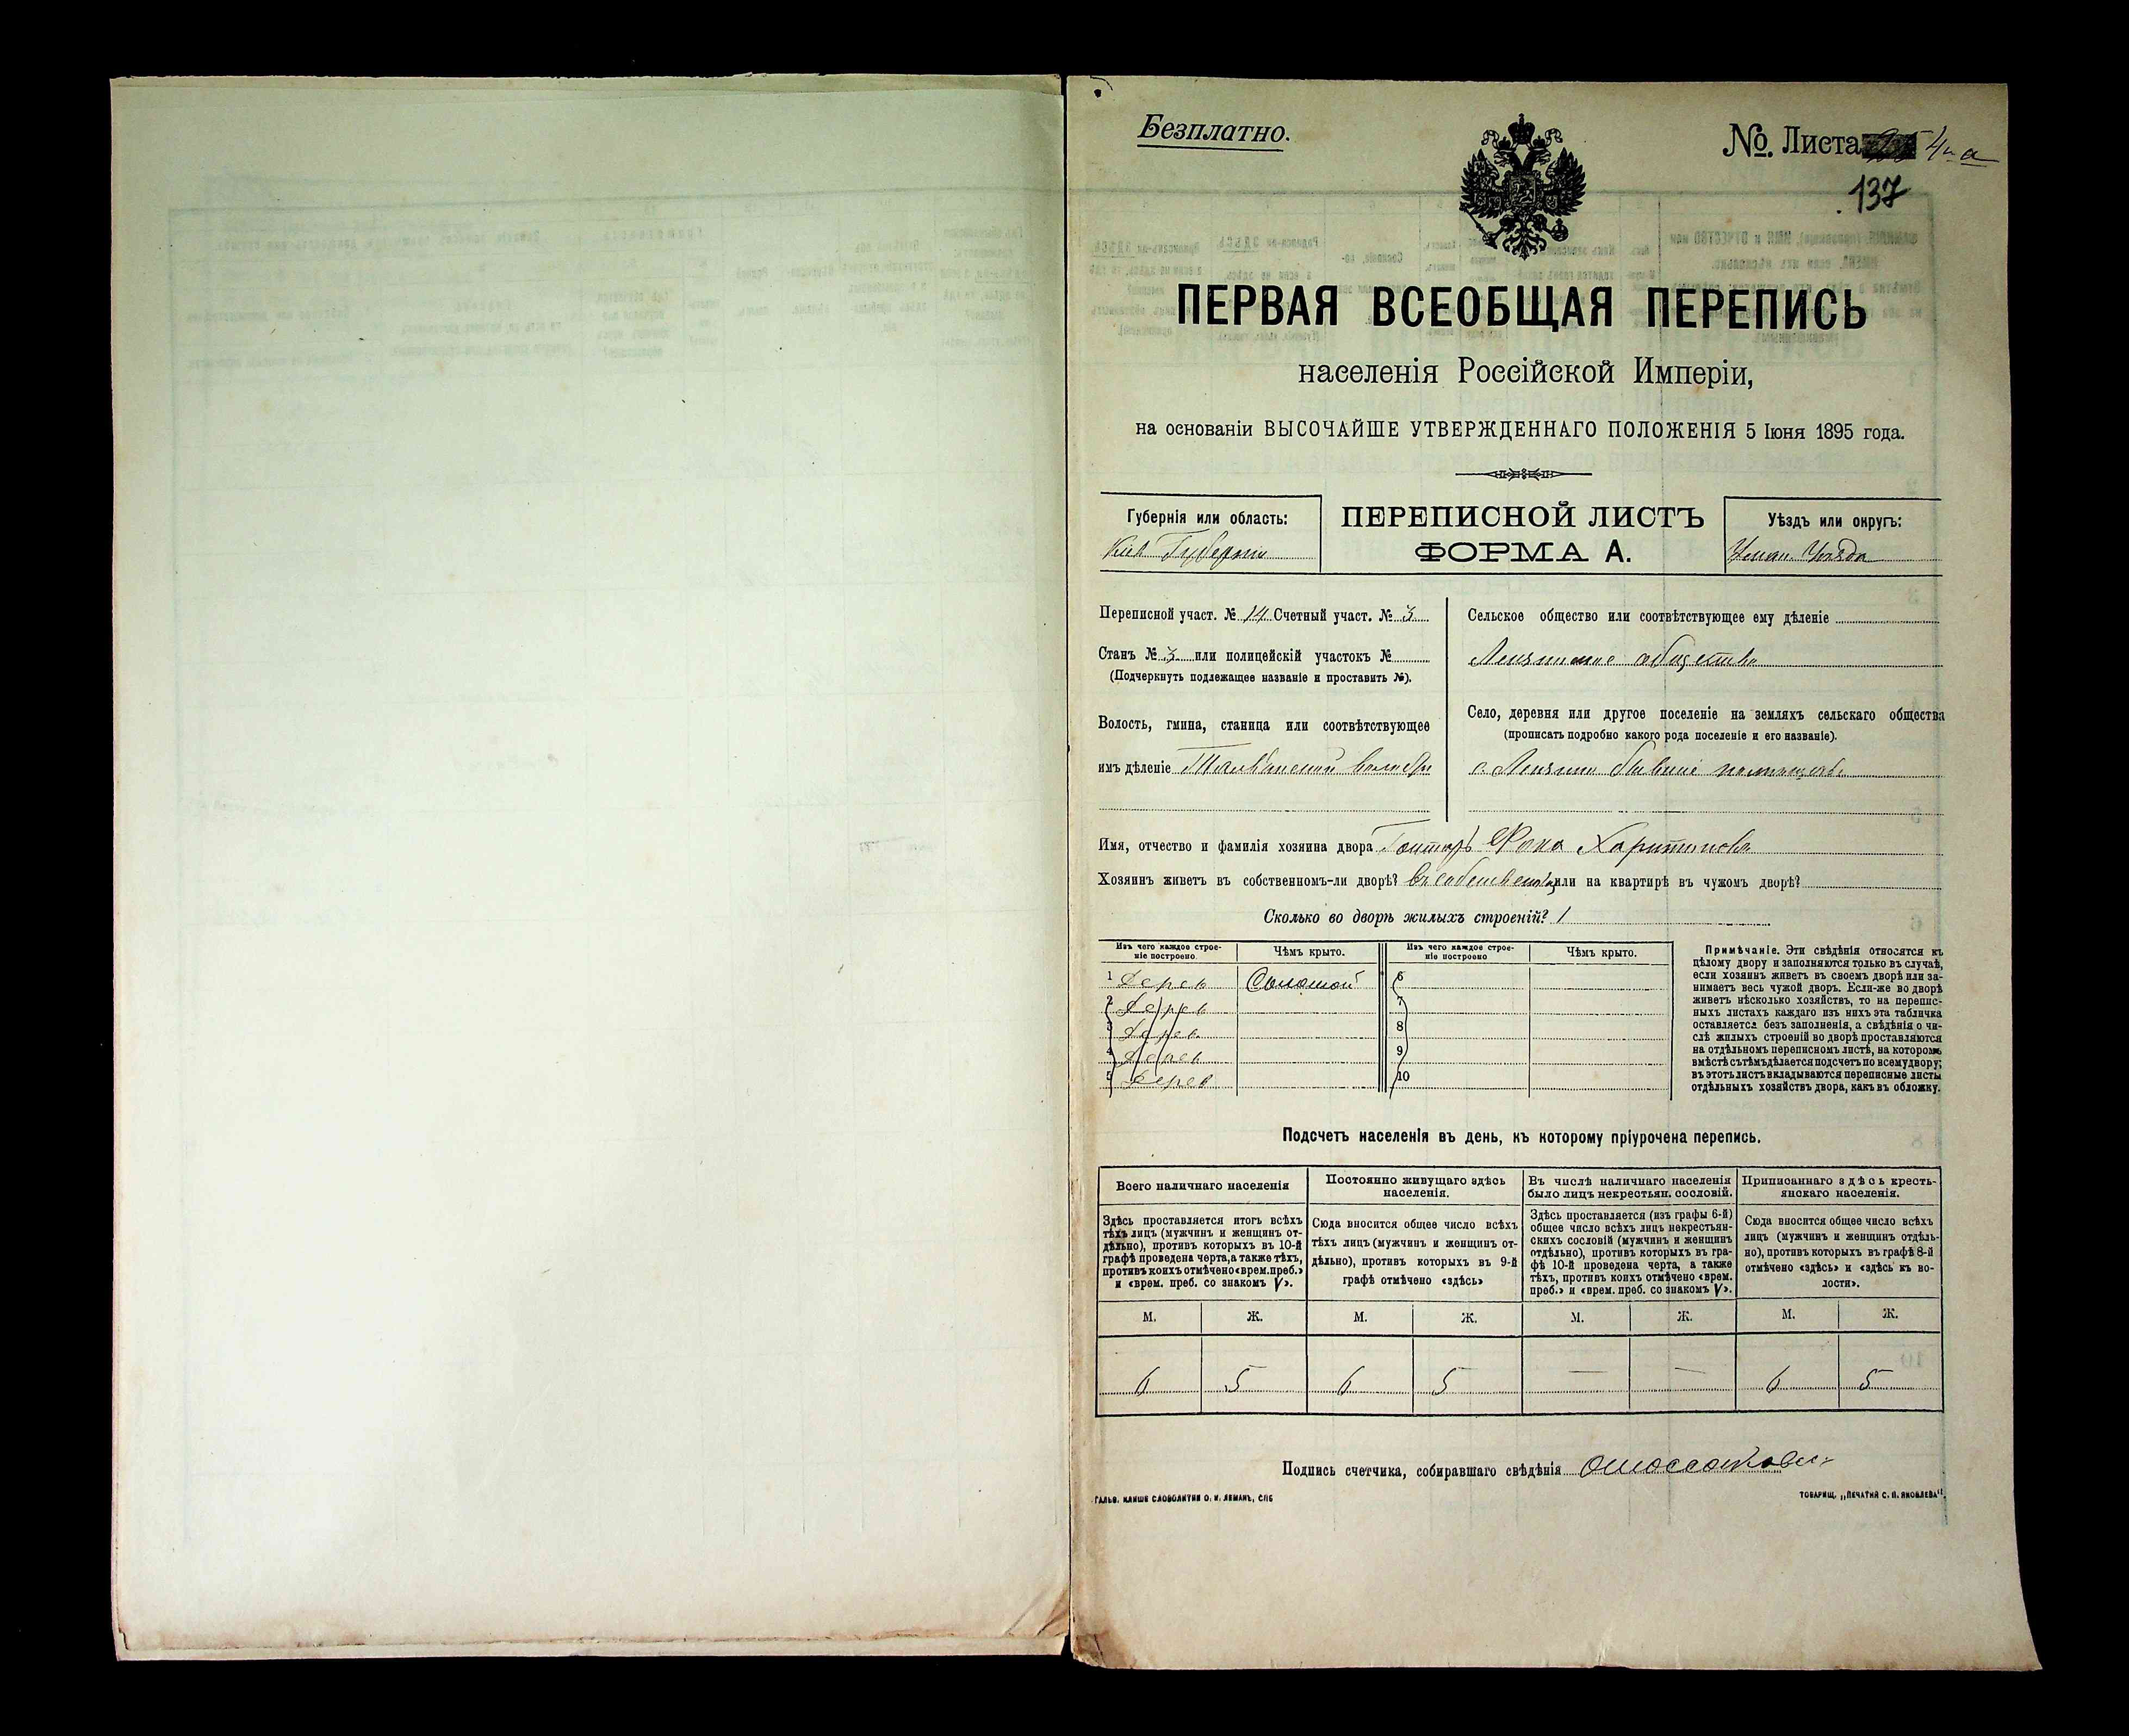 Безплатно.
№. Листа
137
ПЕРВАЯ ВСЕОБЩАЯ ПЕРЕПИСЬ
населенія Россійской Имперіи,
на основаніи ВЫСОЧАЙШЕ УТВЕРЖДЕННАГО ПОЛОЖЕНІЯ 5 Іюня 1895 года.
Губернія или область:
Кіев Губерніи
ПЕРЕПИСНОЙ ЛИСТЪ
ФОРМА А.
Уѣздъ или округъ:
Уман. Уѣзда
Переписной участ. № 14 Счетный участ. № 3
Станъ № 3 или полицейскій участокъ №
(Подчеркнуть подлежащее названіе и проставить №).
Волость, гмина, станица или соотвѣтствующее
имъ дѣленіе
Сельское общество или соотвѣтствующее ему дѣленіе
общество
Село, деревня или другое поселеніе на земляхъ сельскаго общества
(прописать подробно какого рода поселеніе и его названіе).
Имя, отчество и фамилія хозяина двора Гонтарь Фока Харитонова
Хозяинъ живетъ въ собственномъ-ли дворѣ? или на квартирѣ въ чужомъ дворѣ?
Сколько во дворѣ жилыхъ строеній? 1
Изъ чего каждое строе-
ніе построено.
Чѣмъ крыто.
Изъ чего каждое строе-
ніе построено
Чѣмъ крыто.
1 Дерев Соломой 6
2 Дерев 7
3 Дерев 8
4 Дерев 9
5 Дерев 10
Примѣчаніе. Эти свѣдѣнія относятся къ
цѣлому двору и заполняются только въ случаѣ,
если хозяинъ живетъ въ своемъ дворѣ или за-
нимаетъ весь чужой дворъ. Если-же во дворѣ
живетъ нѣсколько хозяйствъ, то на перепис-
ныхъ листахъ каждаго изъ нихъ эта табличка
оставляется безъ заполненія, а свѣдѣнія о чи-
слѣ жилыхъ строеній во дворѣ проставляются
на отдѣльномъ переписномъ листѣ, на которомъ
вмѣстѣ съ тѣмъ дѣлается подсчетъ по всему двору;
въ этотъ листъ вкладываются переписные листы
отдѣльныхъ хозяйствъ двора, какъ въ обложку.
Подсчетъ населенія въ день, къ которому пріурочена перепись.
Всего наличнаго населенія
Здѣсь проставляется итогъ всѣхъ
тѣхъ лицъ (мужчинъ и женщинъ от-
дѣльно), противъ которыхъ въ 10-й
графѣ проведена черта, а также тѣхъ,
противъ коихъ отмѣчено «врем. преб.»
и «врем. преб. со знакомъ V».
Постоянно живущаго здѣсь
населенія.
Сюда вносится общее число всѣхъ
тѣхъ лицъ (мужчинъ и женщинъ от-
дѣльно), противъ которыхъ въ 9-й
графѣ отмѣчено «здѣсь»
Въ числѣ наличнаго населенія
было лицъ некрестьян. сословій.
Здѣсь проставляется (изъ графы 6-й)
общее число всѣхъ лицъ некрестьян-
скихъ сословій (мужчинъ и женщинъ
отдѣльно), противъ которыхъ въ гра-
фѣ 10-й проведена черта, а также
тѣхъ, противъ коихъ отмѣчено «врем.
преб.» и «врем. преб. со знакомъ V».
Приписаннаго здѣсь кресть-
янскаго населенія.
Сюда вносится общее число всѣхъ
лицъ (мужчинъ и женщинъ отдѣль-
но), противъ которыхъ въ графѣ 8-й
отмѣчено «здѣсь» и «здѣсь къ во-
лости».
М. Ж. М. Ж. М. Ж. М. Ж.
6 5 6 5 — — 6 5
Подпись счетчика, собиравшаго свѣдѣнія
ГАЛЬВ. КЛИШЕ СЛОВОЛИТНИ О. И. ЛЕМАНЪ, СПБ
ТОВАРИЩ. „ПЕЧАТНЯ С. П. ЯКОВЛЕВА".